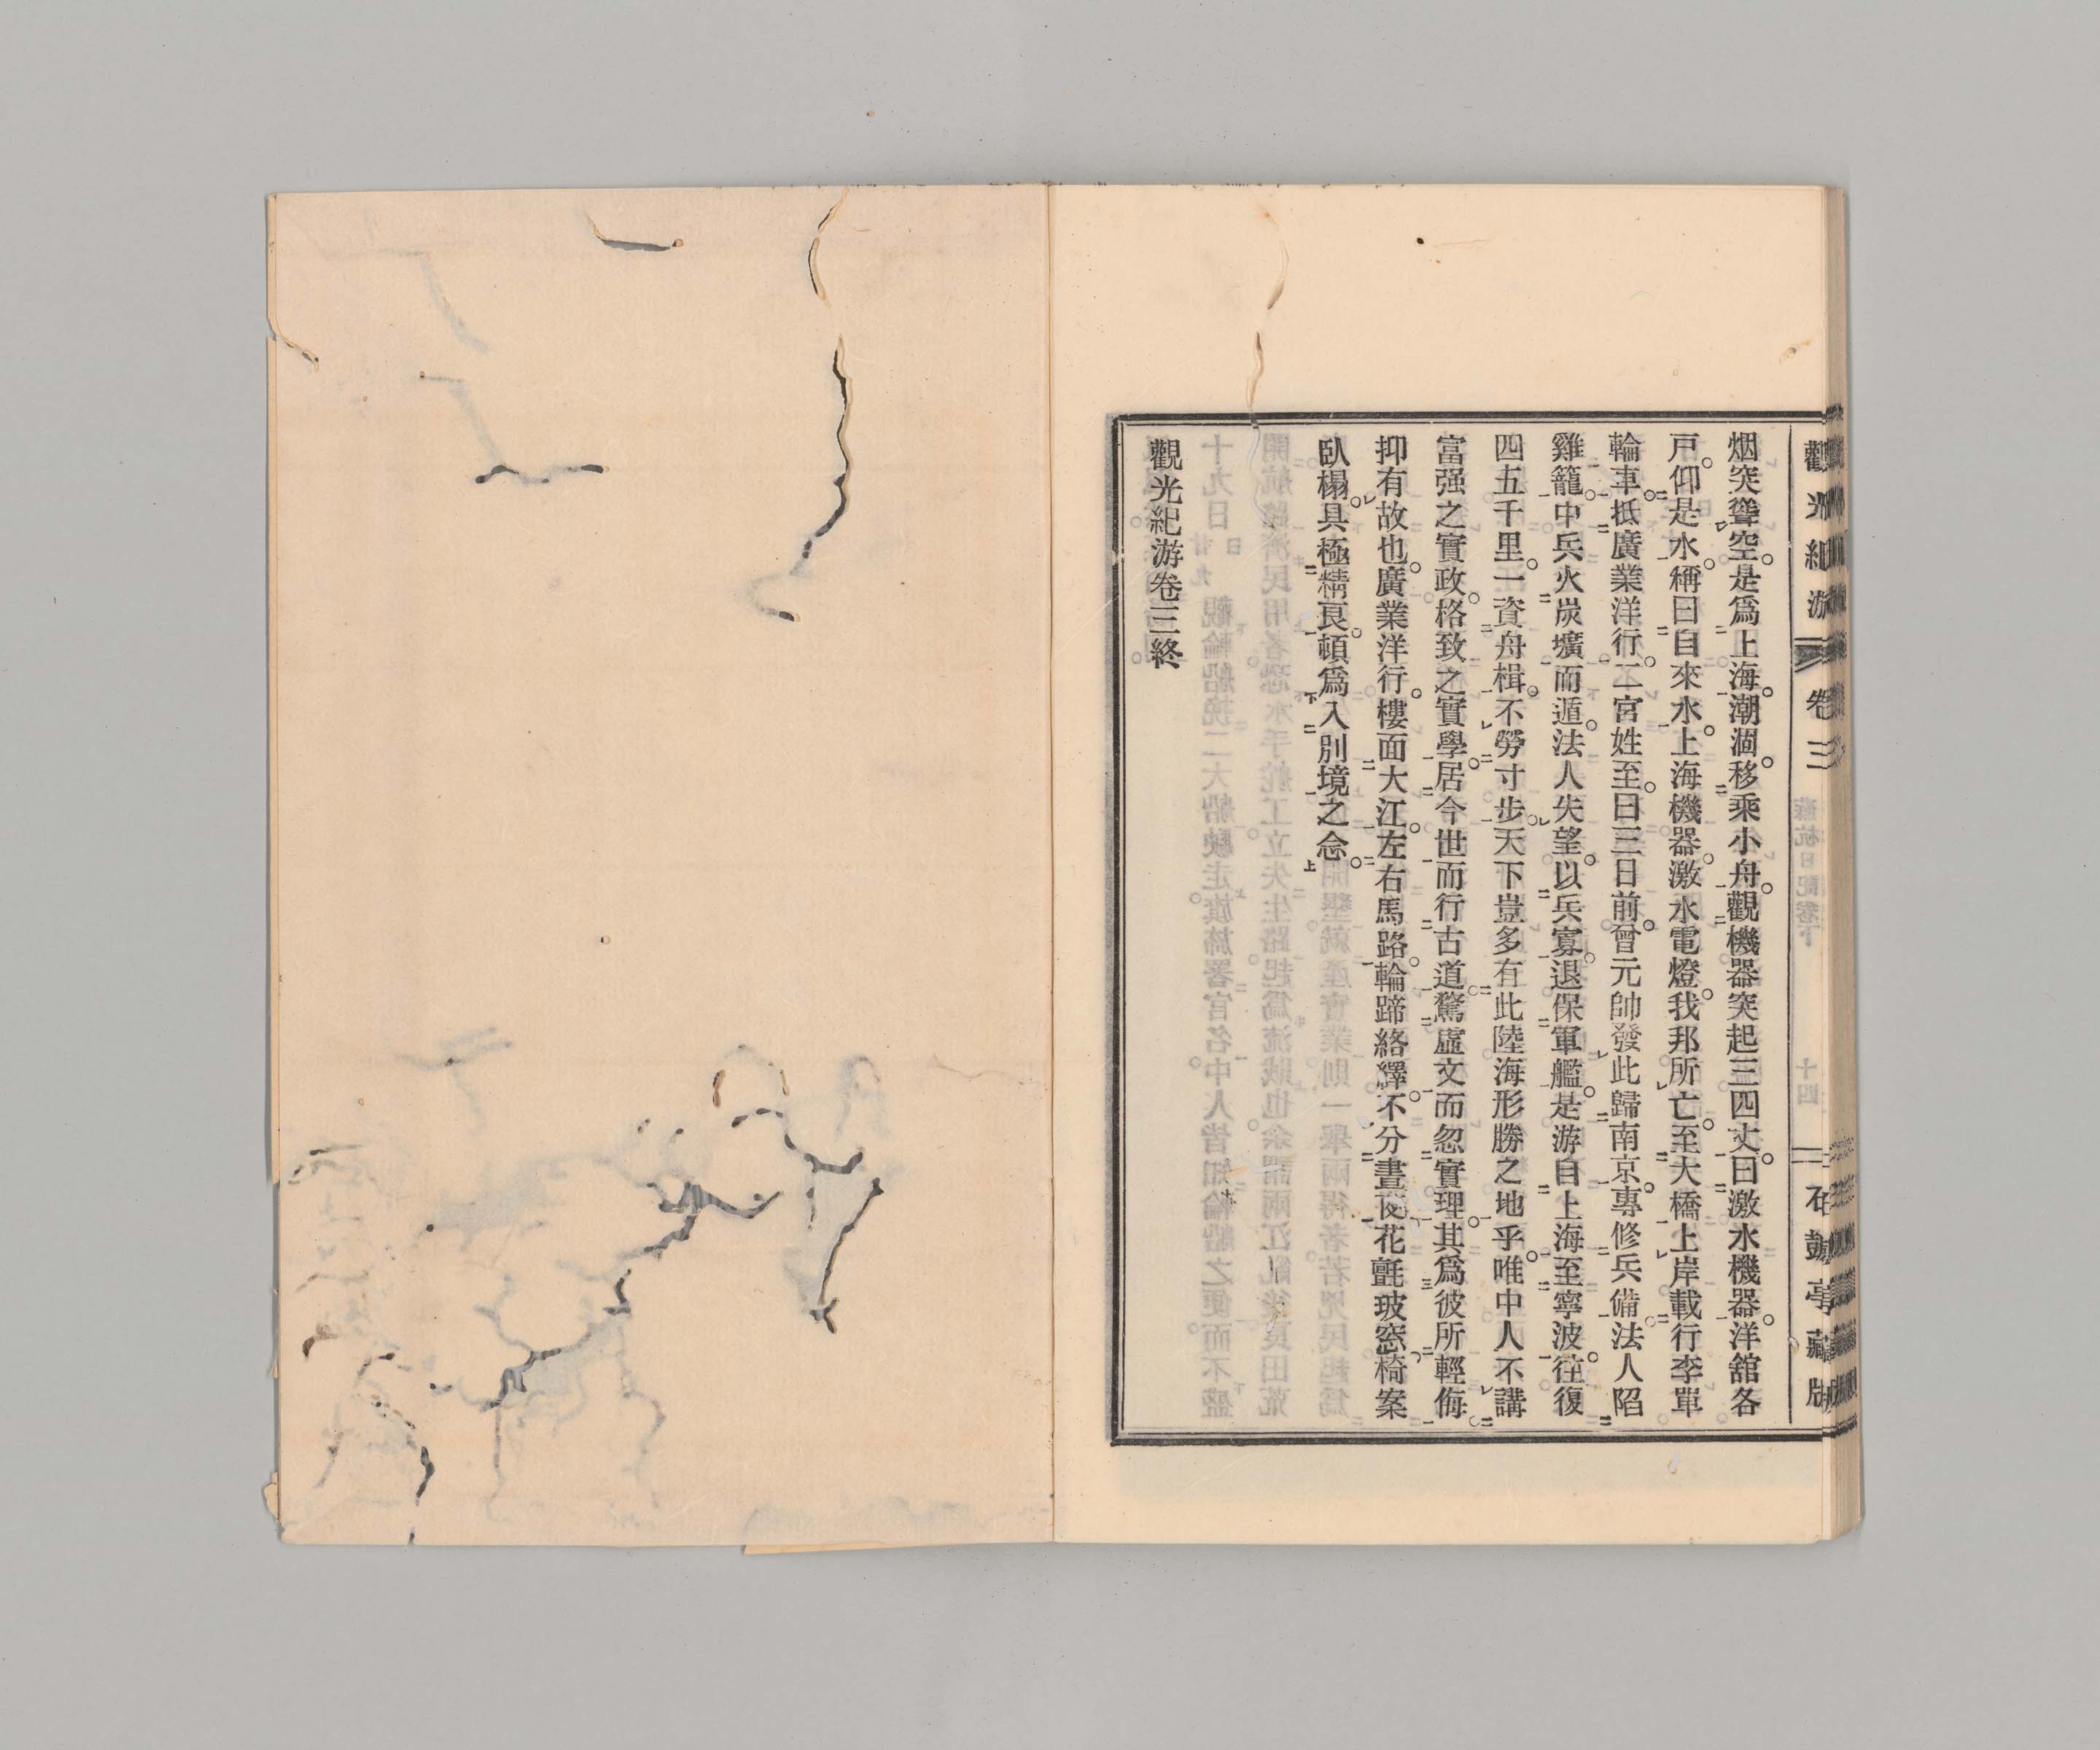 觀光紀游 卷三 石鼓亭藏版
烟突聳空。是爲上海。潮涸。移乘小舟。觀機器突起三四丈。曰激水機器。洋舘各
戶。仰是水。稱曰自來水。上海機器。激水電燈。我邦所亡。至大橋上岸。載行李單
輪車。抵廣業洋行。二宮姓至。曰三日前。曾元帥發此歸南京。專修兵備。法人陷
雞籠。中兵火炭壙而遁。法人失望。以兵寡。退保軍艦。是游自上海至寧波。往復
四五千里。一資舟楫。不勞寸步。天下豈多有此陸海形勝之地乎。唯中人不講
富强之實政。格致之實學。居今世而行古道。驁虛文而忽實理。其爲彼所輕侮。
抑有故也。廣業洋行。樓面大江。左右馬路。輪蹄絡繹。不分晝夜。花氈玻窓。椅案
臥榻。具極精良。頓爲入別境之念。
觀光紀游卷三終